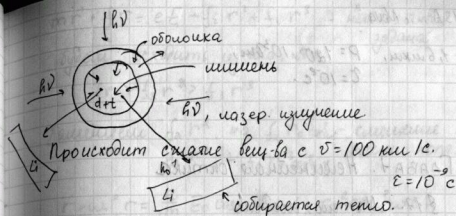 hν
оболочка
мишень
d+t
hν
hν, лазер. излучение.
Li
Происходит сжатие вещ-ва с v=100 км/с.
Li
собирается тепло.